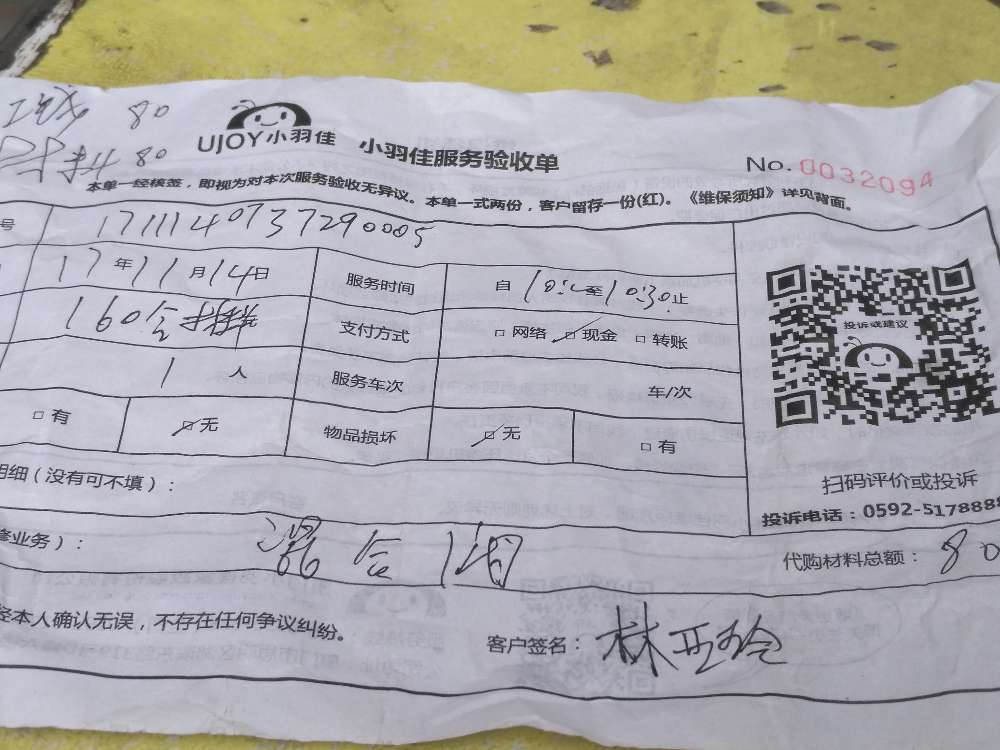 80
80
UJOY小羽佳 小羽佳服务验收单
No. 0032094
本单一经核签，即视为对本次服务验收无异议。本单一式两份，客户留存一份(红)。《维保须知》详见背面。
号 1711140737290005
17年11月14日 服务时间 自 至10:30止
160含材料 支付方式 □网络 ☑现金 □转账
1人 服务车次 车/次
□有 ☑无 物品损坏 ☑无 □有
投诉或建议
扫码评价或投诉
投诉电话：0592-5178888
明细（没有可不填）：
修业务）： 混合 1 代购材料总额：80
经本人确认无误，不存在任何争议纠纷。
客户签名：林亚玲